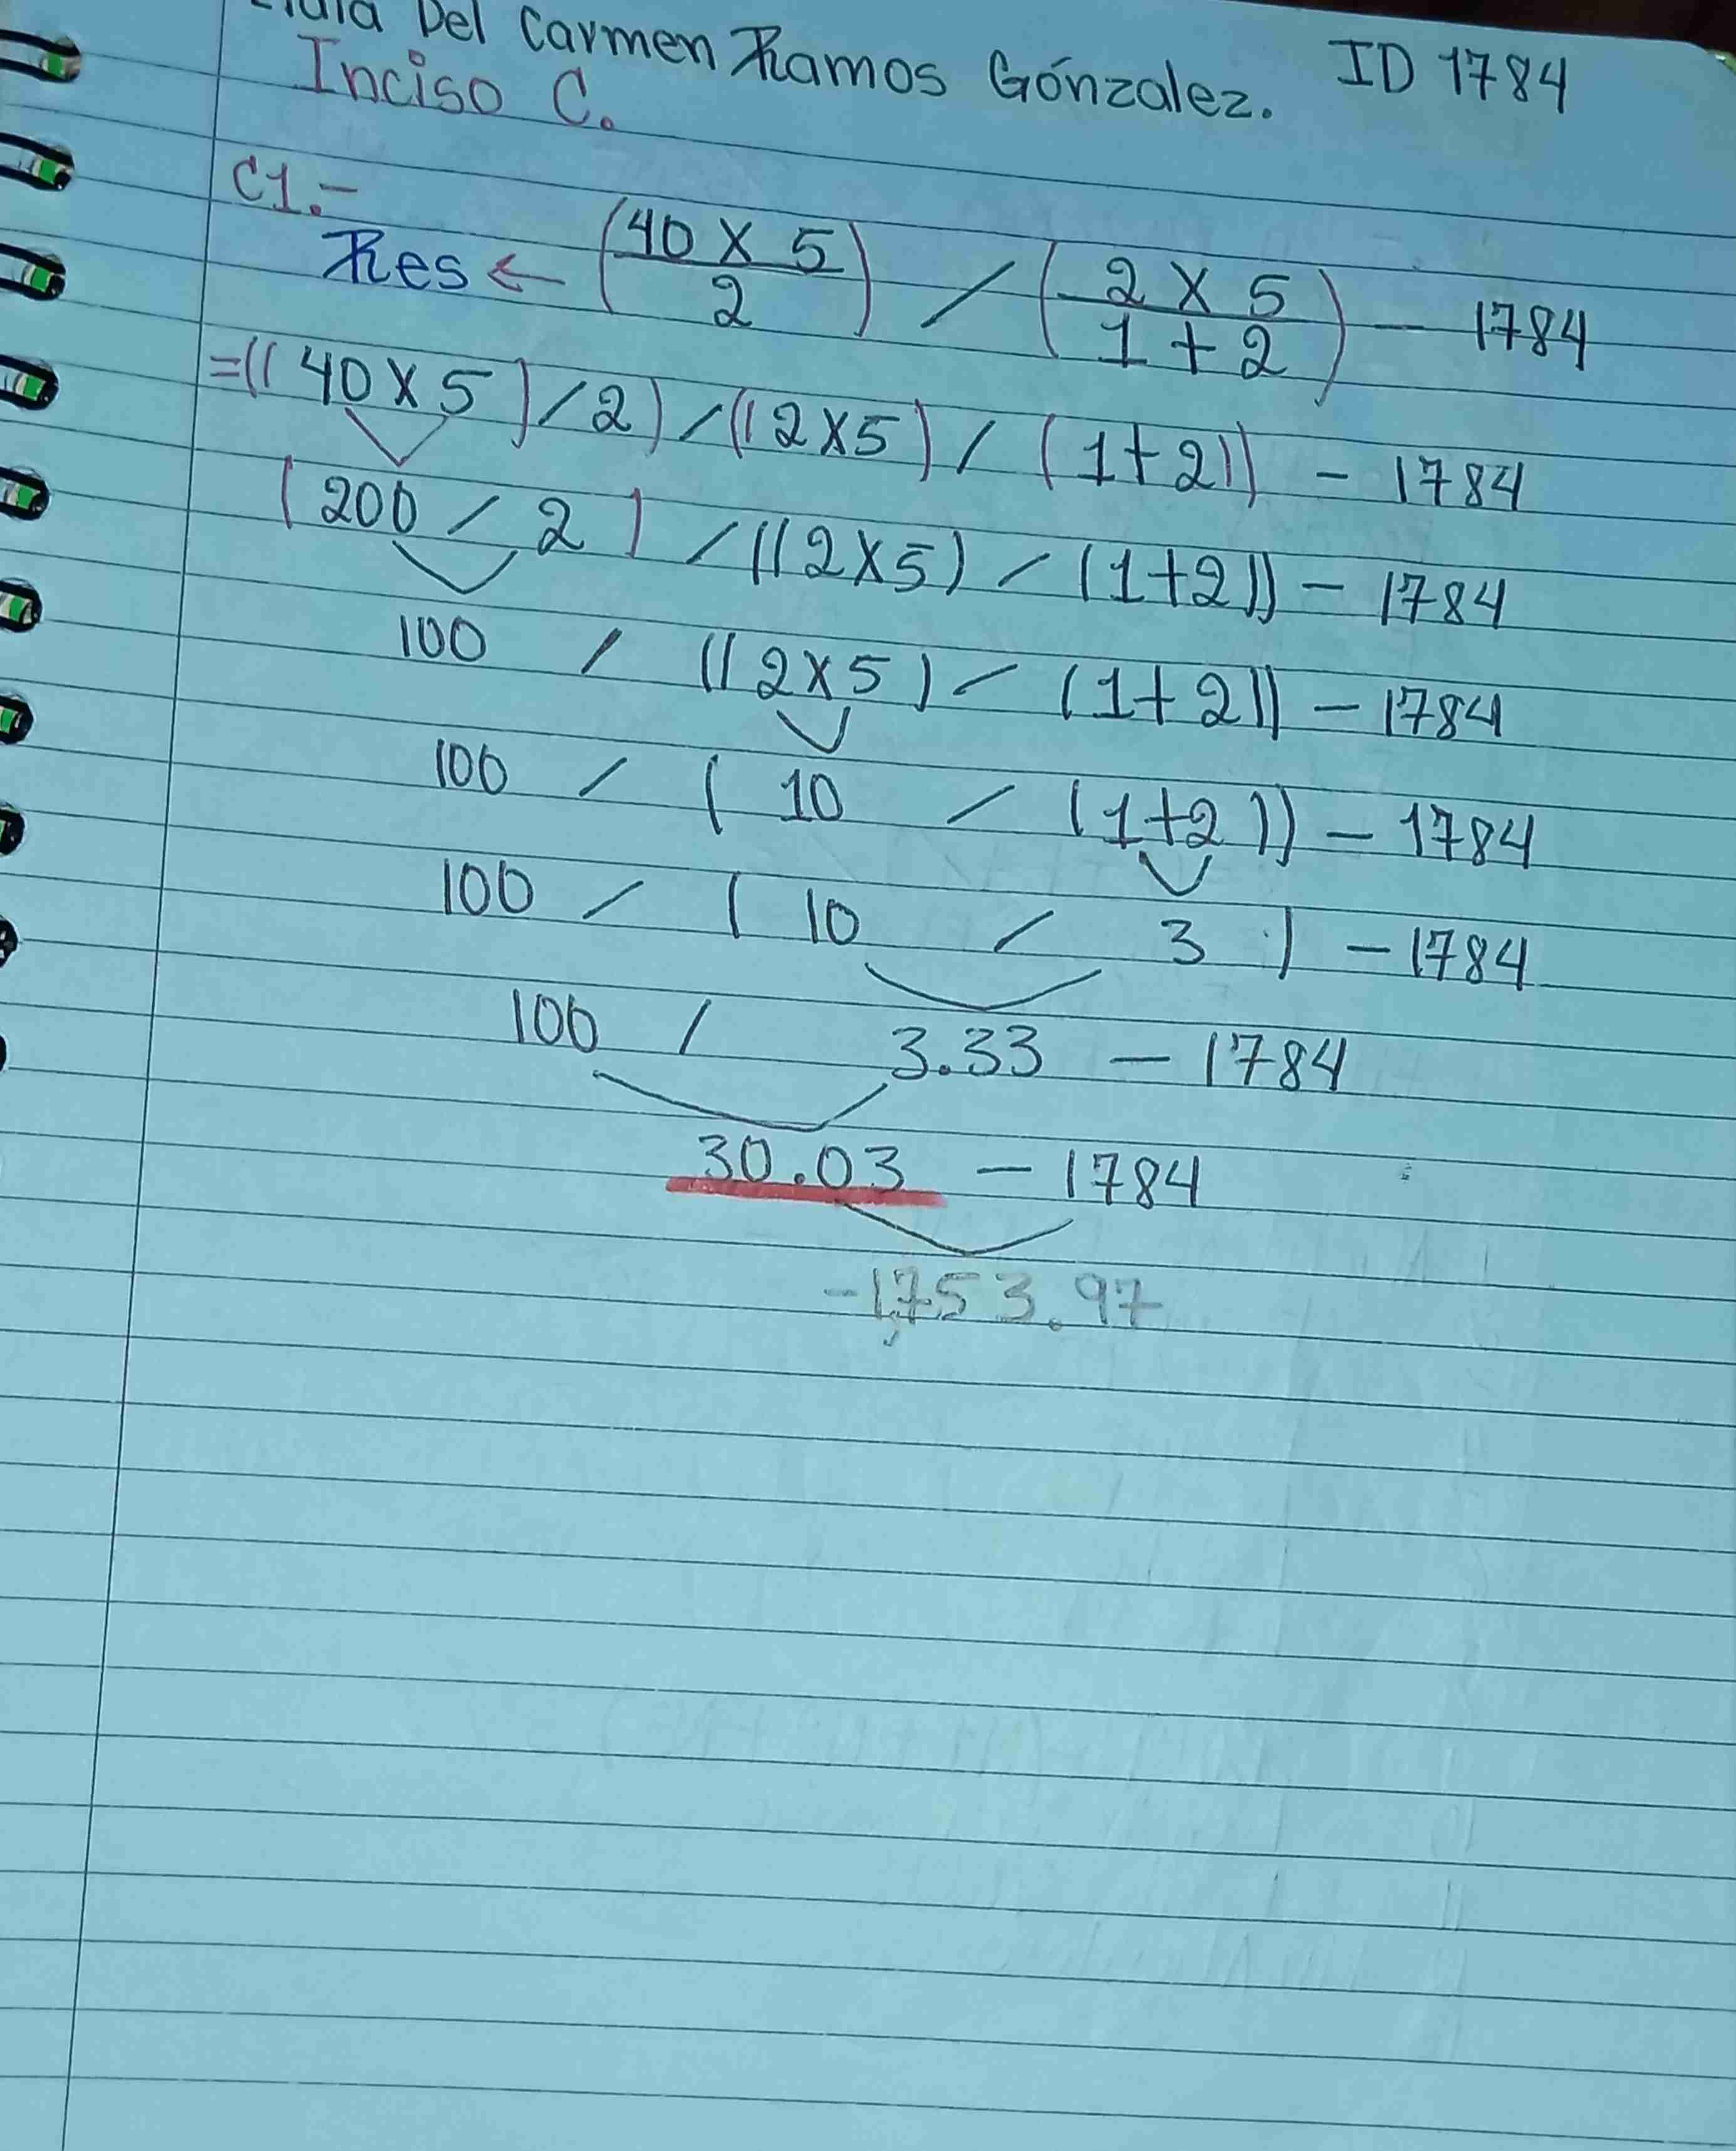 Del Carmen Ramos Gónzalez. ID 1784
Inciso C.
C1.-
Res ← (40 x 5 / 2) / (2 x 5 / 1 + 2) - 1784
=((40 x 5) / 2) / ((2 x 5) / (1+2)) - 1784
(200 / 2) / ((2x5) / (1+2)) - 1784
100 / ((2x5) / (1+2)) - 1784
100 / ( 10 / (1+2)) - 1784
100 / ( 10 / 3 ) - 1784
100 / 3.33 - 1784
30.03 - 1784
-1,753.97